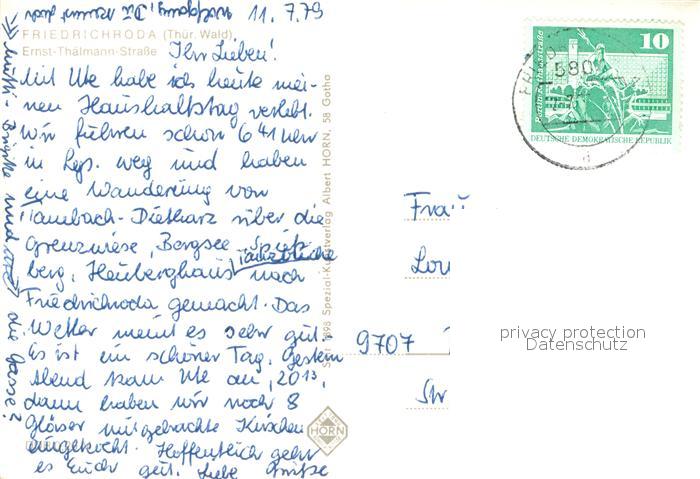 11. 7. 79
FRIEDRICHRODA (Thür. Wald)
Ernst-Thälmann-Straße
Ihr Lieben!
Mit Ute habe ich heute mei-
nen Haushaltstag verlebt.
Wir fuhren schon 6 41 Uhr
in Lgs. weg und haben
eine Wanderung von
Tambach-Dietharz über die
Grenzwiese, Bergsee, Spieß-
berg, Heuberghaus nach
Friedrichroda gemacht. Das
Wetter meint es sehr gut.
Es ist ein schöner Tag. Gestern
Abend kam Ute an, 20 13,
dann haben wir noch 8
Gläser mitgebrachte Kirschen
eingekocht. Hoffentlich geht
es Euch gut. Liebe Grüße
Mutti - Brigitte und
die Gasse?
Spezial-Kunstverlag Albert HORN, 58 Gotha
HORN
Frau
9707
Str
10
580
DEUTSCHE DEMOKRATISCHE REPUBLIK
privacy protection
Datenschutz